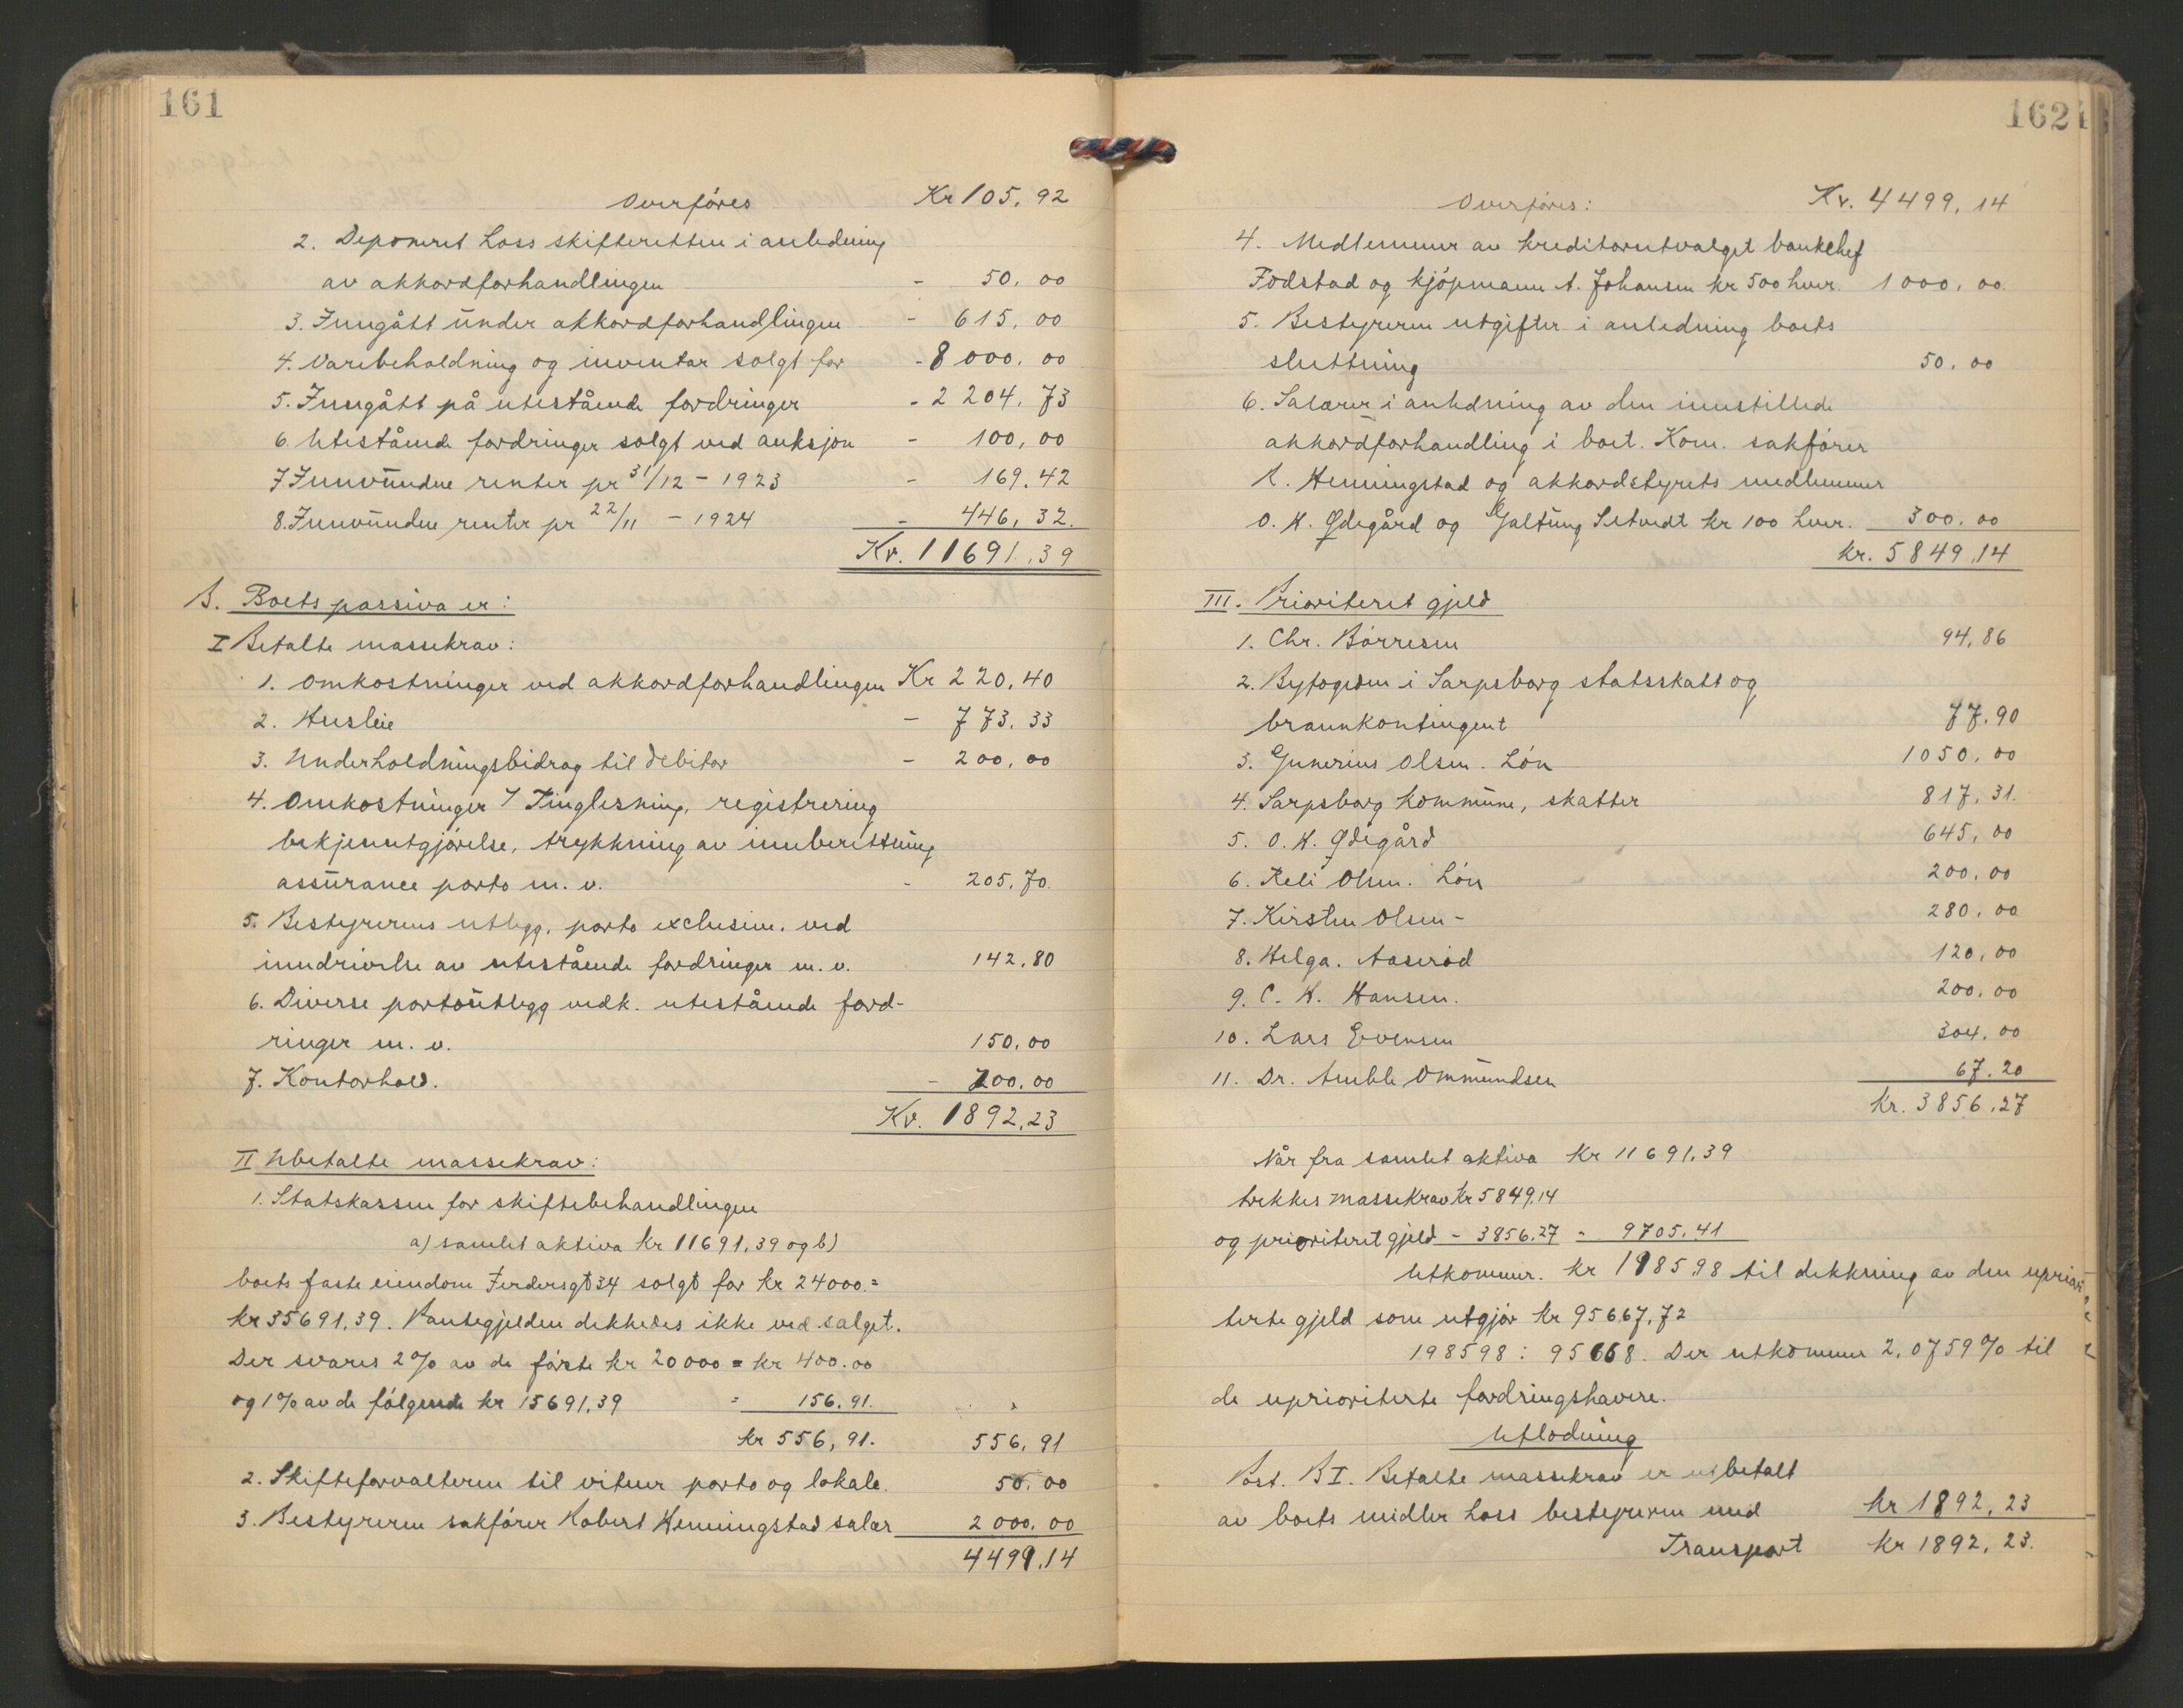 161
Overføres Kr 105,92
2. Deponeret hoss skifteretten i anledning
av akkordforhandlingen - 50,00
3. Inngått under akkordforhandlingen - 615,00
4. Varebeholdning og inventar solgt for - 8000,00
5. Inngått på utestående fordringer - 2204,73
6. Utestående fordringer solgt ved auksjon - 100,00
7. Innvundne renter pr 31/12 - 1923 - 169.42
8. Innvundne renter pr 22/11 - 1924 - 446,32.
Kr. 11691,39
B. Boets passiva er:
I Betalte massekrav:
1. Omkostninger ved akkordforhandlingen Kr 220,40
2. Husleie - 773.33
3. Underholdningsbidrag til debitor - 200,00
4. Omkostninger / Tinglesning, registrering
bekjenntgjørelse, trykkning av innberettning
assurance porto m. v. - 205,70.
5. Bestyrerens utlegg, porto exclusive, ved
inndrivelse av utestående fordringer m. v. 142,80
6. Diverse portoutlegg vedk. utestående ford-
ringer m. v. 150,00
7. Kontorhold. - 200,00
Kr. 1892,23
II Ubetalte massekrav:
1. Statskassen for skiftebehandlingen
a) samlet aktiva Kr 11691,39 og b)
boets faste eiendom Ferdersgt 34 solgt for kr 24000.=
kr 35691,39. Pantegjelden dekkedes ikke ved salget.
Der svares 2% av de første kr 20000 = kr 400.00
og 1% av de følgende kr 15691,39 = 156.91.
kr 556,91. 556,91
2. Skifteforvalteren til vitner porto og lokale. 50.00
3. Bestyreren sakfører Robert Henningstad salær 2000,00
4499,14
162
Overføres: Kr. 4499,14
4. Medlemmer av kreditorutvalget bankchef
Fodstad og kjøpmann A. Johansen kr 500 hver. 1000,00.
5. Bestyreren utgifter i anledning boets
sluttning 50.00
6. Salærer i anledning av den innstillede
akkordforhandling i boet. Kom. sakfører
R. Henningstad og akkordstyrets medlemmer
O. H. Ødegård og Galtung Setvedt kr 100 hver. 300.00
kr. 5849,14
III. Prioriteret gjeld
1. Chr. Børresen 94,86
2. Byfogden i Sarpsborg statsskatt og
brannkontingent 77.90
3. Gunerius Olsen. Løn 1050,00
4. Sarpsborg kommune, skatter 817,31.
5. O. H. Ødegård 645,00
6. Reli Olsen. Løn 200,00
7. Kirsten Olsen - 280,00
8. Helga. Aaserød 120,00
9. C. H. Hansen. 200.00
10. Lars Evensen 304.00
11. Dr. Amble Ommundsen 67.20
Kr. 3856,27
Når fra samlet aktiva Kr 11691.39
trekkes massekrav kr 5849,14
og prioriteret gjeld - 3856.27 - 9705,41
Utkommer. kr 198598 til dekkning av den upriori
terte gjeld som utgjør kr 95667,72
198598 : 95668. Der utkommer 2,0759% til
de uprioriterte fordringshavere.
Utlodning
Post. B I. Betalte massekrav er utbetalt
av boets midler hoss bestyreren med kr 1892,23
Transport kr 1892,23.